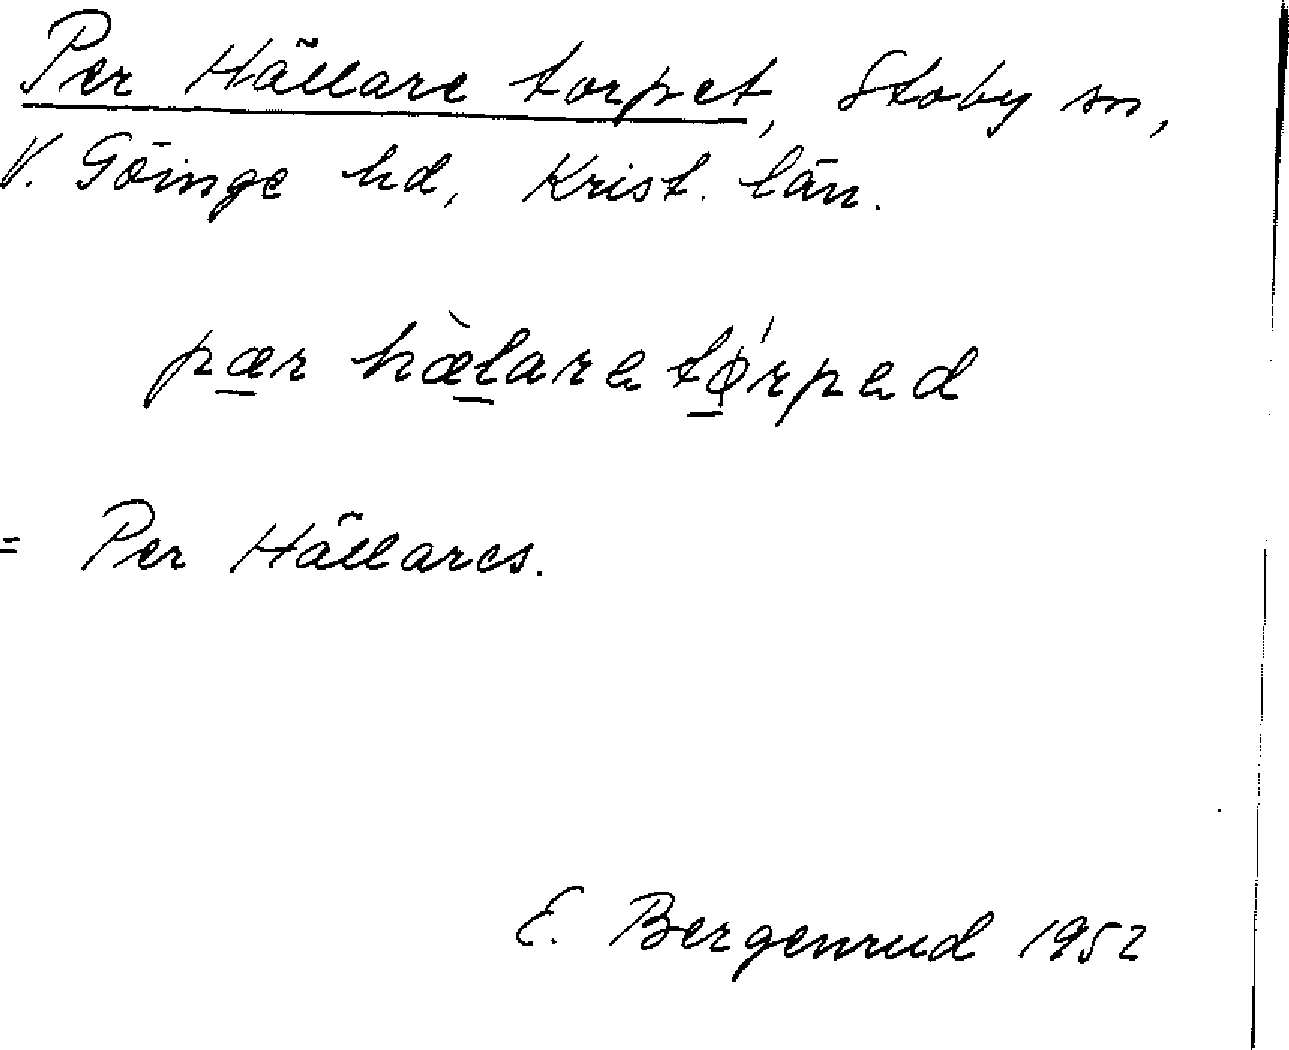 Per Hällare torpet, Stoby sn,
V. Göinge hd, Krist. län.
pær hæ̀lare tǿrped
= Per Hällares.
E. Bergenrud 1952